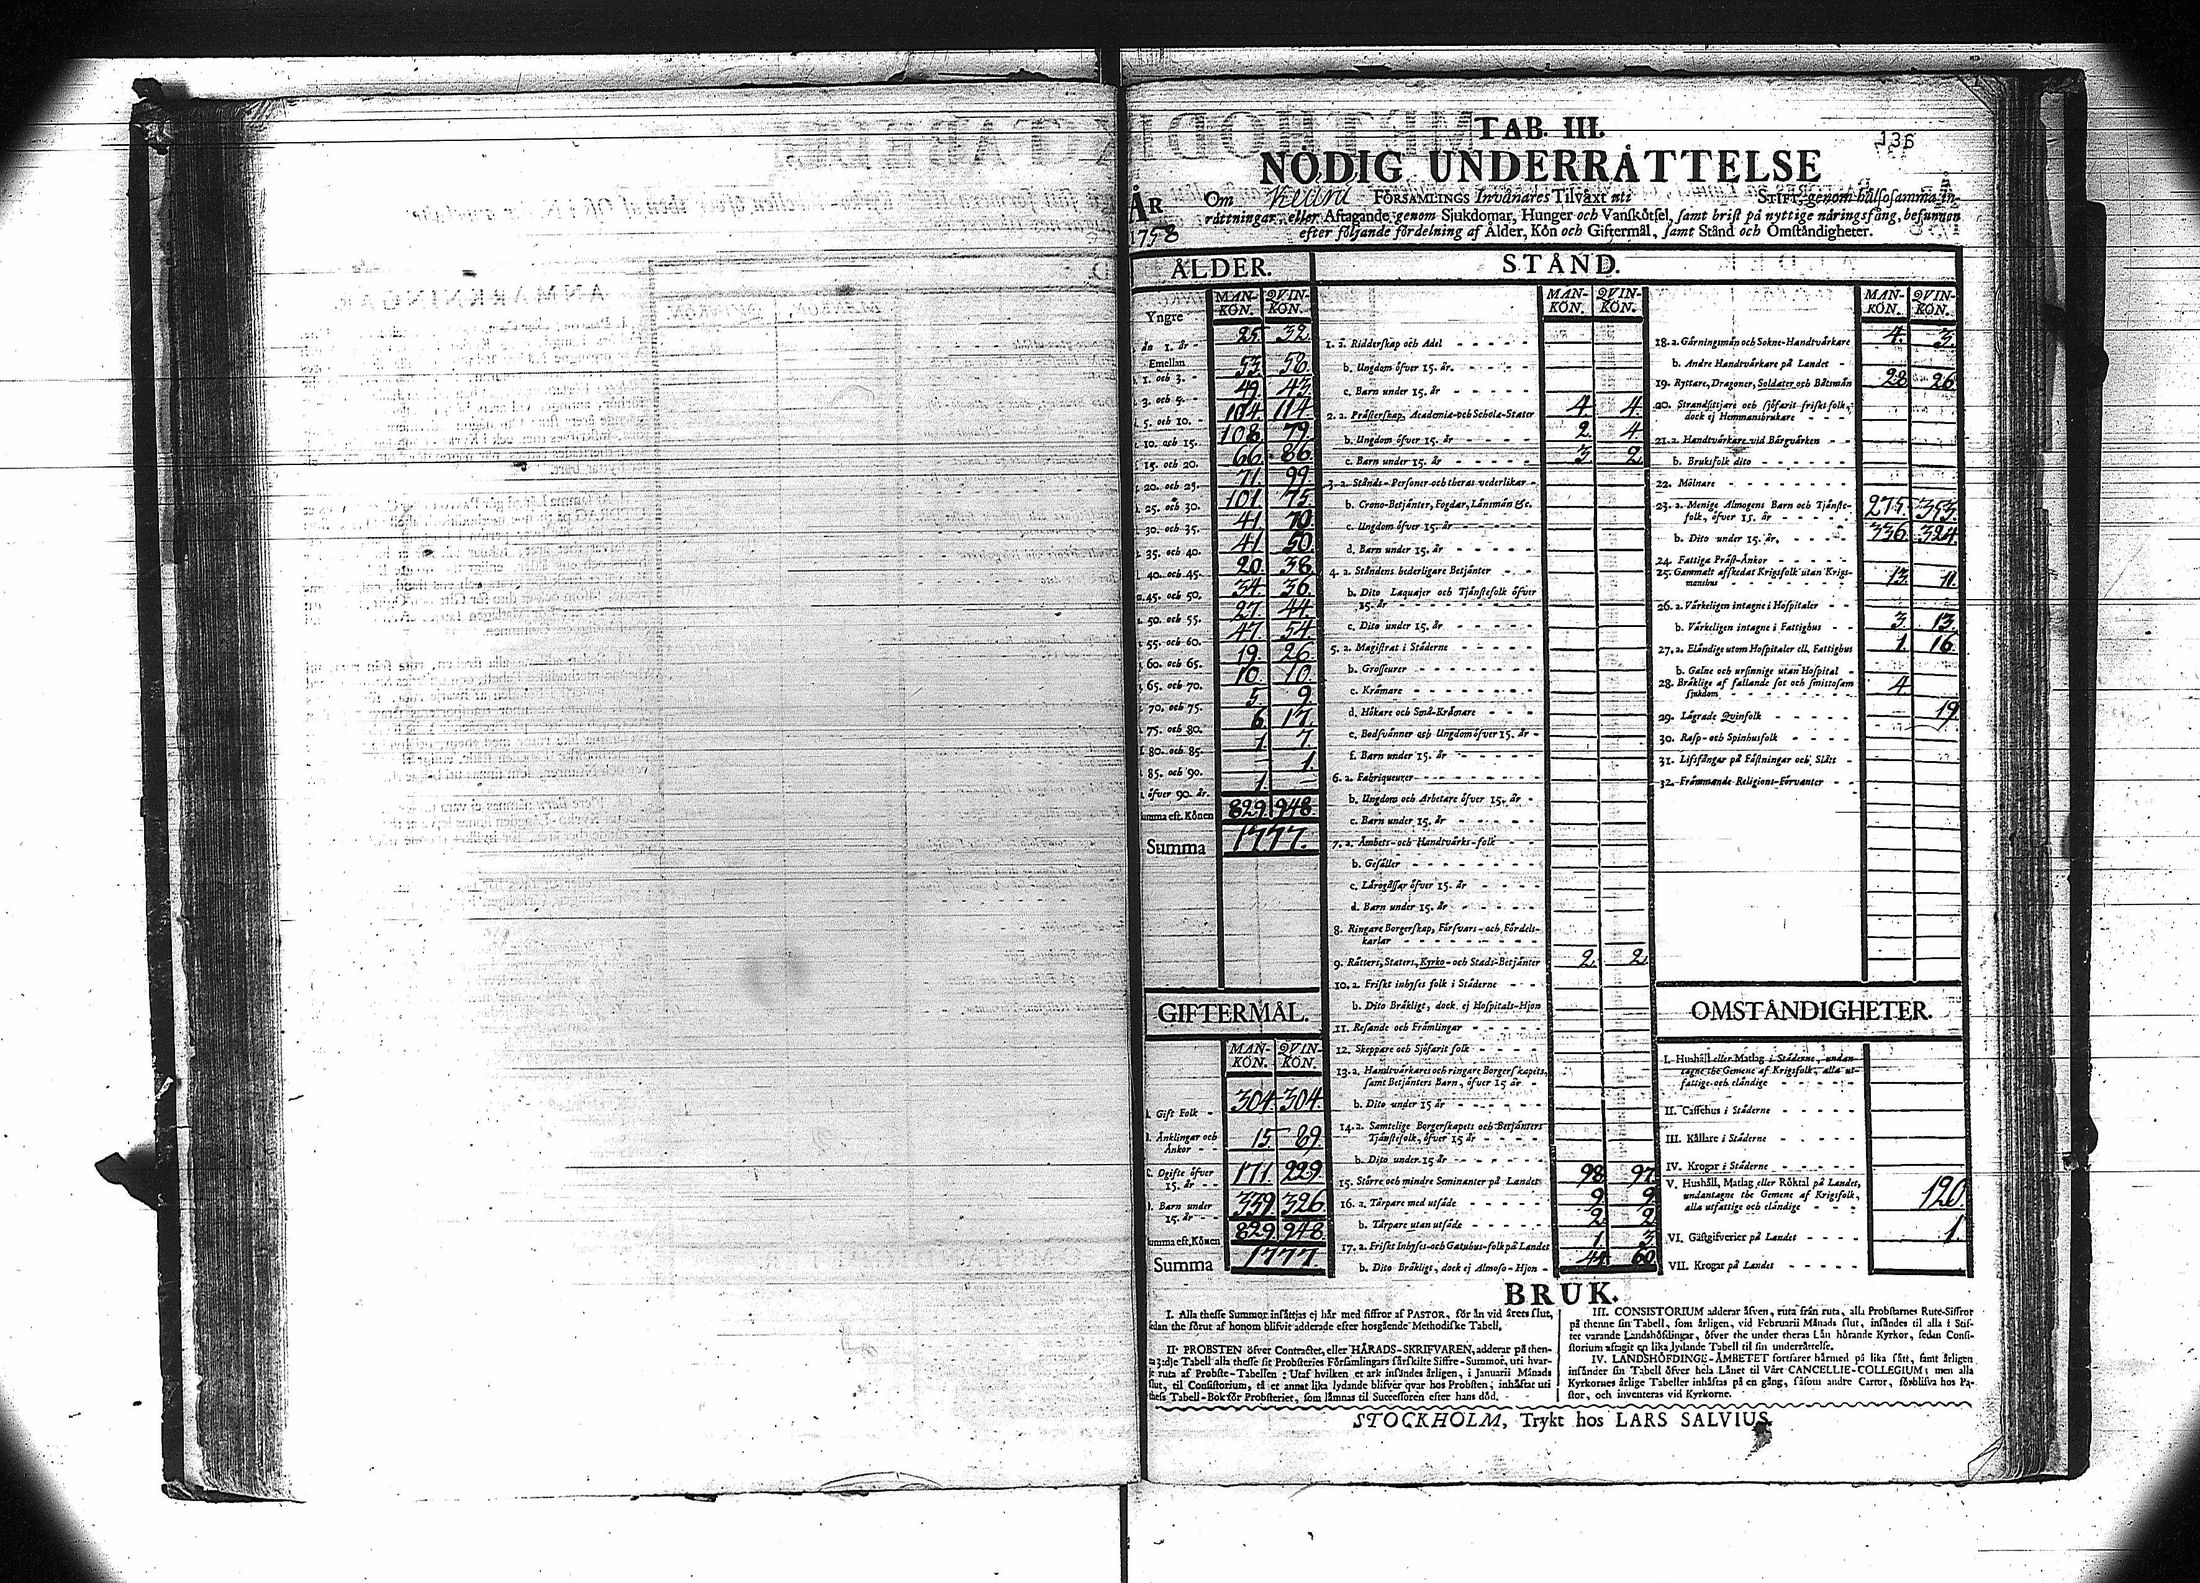 TAB. III.
136
NÖDIG UNDERRÅTTELSE
ÅR 1758
Om Keuru FÖRSAMLINGS Invånares Tilväxt uti STIFT, genom hälsosamma in-
råttningar, eller Aftagande genom Sjukdomar, Hunger och Vanskötsel, samt brist på nyttige näringsfång, befunnen
efter följande fördelning af Ålder, Kön och Giftermål, samt Stånd och Omståndigheter.
ÅLDER.
MAN-KÖN. QVIN-KÖN.
Yngre än 1. år - 25. 32.
Emellan 1. och 3. - 53. 58.
3. och 5. - 49. 43.
5. och 10. - 104. 114.
10. och 15. 108. 79.
15. och 20. 66. 86.
20. och 25. 71. 99.
25. och 30. 101. 75.
30. och 35. 41. 70.
35. och 40. 41. 50.
40. och 45. 20. 38.
45. och 50. 34. 36.
50. och 55. 27. 44.
55. och 60. 47. 54.
60. och 65. 19. 26.
65. och 70. 10. 10.
70. och 75. 5. 9.
75. och 80. 6. 17.
80. och 85. 1. 7.
85. och 90. 1.
öfver 90. år. 1.
Summa eft. Könen 829. 948.
Summa 1777.
GIFTERMÅL.
MAN-KÖN. QVIN-KÖN.
Gift Folk - 304. 304.
Änklingar och Änkor - - 15. 89.
Ogifte öfver 15. år - - 171. 229.
Barn under 15. år - - 339. 326.
Summa eft. Könen 829. 948.
Summa 1777.
STÅND.
MAN-KÖN. QVIN-KÖN.
1. a. Ridderskap och Adel
b. Ungdom öfver 15. år.
c. Barn under 15. år
2. a. Prästerskap, Academiæ-och Scholæ-Stater 4. 4.
b. Ungdom öfver 15. år 2. 4.
c. Barn under 15. år 3. 2.
3. a. Stånds-Personer och theras vederlikar
b. Crono-Betjänter, Fogdar, Länsmän &c.
c. Ungdom öfver 15. år
d. Barn under 15. år
4. a. Ståndens hederligare Betjänter
b. Dito Laquajer och Tjänstefolk öfver
15. år
c. Dito under 15. år
5. a. Magistrat i Städerne
b. Grosseurer
c. Krämare
d. Hökare och Små-Krämare
e. Bodsvänner och Ungdom öfver 15. år
f. Barn under 15. år
6. a. Fabriqueurer
b. Ungdom och Arbetare öfver 15. år
c. Barn under 15. år
7. a. Ämbets-och Handtvärks-folk
b. Gesäller
c. Lärogåssar öfver 15. år
d. Barn under 15. år
8. Ringare Borgerskap, Försvars-och Fördels-
karlar
9. Rätters, Staters, Kyrko-och Stads-Betjänter 2. 2.
10. a. Friskt inhyses folk i Städerne
b. Dito Bräkligt, dock ej Hospitals-Hjon
11. Resande och Främlingar
12. Skeppare och Sjöfarit folk
13. a. Handtvärkares och ringare Borgerskapets,
samt Betjänters Barn, öfver 15 år
b. Dito under 15 år
14. a. Samtelige Borgerskapets och Betjänters
Tjänstefolk, öfver 15 år
b. Dito under 15 år
15. Större och mindre Seminanter på Landet 98. 97.
16. a. Tårpare med utsäde 9. 9.
b. Tårpare utan utsäde 2. 2.
17. a. Friskt Inhyses-och Gatuhus-folk på Landet 1. 3.
b. Dito Bräkligt, dock ej Almoso-Hjon 44. 60.
MAN-KÖN. QVIN-KÖN.
18. a. Gärningsmän och Sokne-Handtvärkare 4. 3.
b. Andre Handtvärkare på Landet
19. Ryttare, Dragoner, Soldater och Båtsmän 28. 26.
20. Strandsittjare och sjöfarit friskt folk,
dock ej Hemmansbrukare
21. a. Handtvärkare vid Bärgvärken
b. Bruksfolk dito
22. Mölnare
23. a. Menige Almogens Barn och Tjänste-
folk, öfver 15. år 275. 353.
b. Dito under 15. år. 336. 324.
24. Fattiga Präst-Änkor
25. Gammalt afskedat Krigsfolk utan Krigs-
manshus 13. 11.
26. a. Värkeligen intagne i Hospitaler
b. Värkeligen intagne i Fattighus 3. 13.
27. a. Eländige utom Hospitaler ell. Fattighus 1. 16.
b. Galne och ursinnige utan Hospital
28. Bräklige af fallande sot och smittosam
sjukdom 4
29. Lägrade Qvinfolk 19.
30. Rasp-och Spinhusfolk
31. Lifsfångar på Fästningar och Slätt
32. Främmande Religions-Förvanter
OMSTÅNDIGHETER.
I. Hushåll eller Matlag i Städerne, undan-
tagne the Gemene af Krigsfolk, alla ut-
fattige och eländige
II. Caffehus i Städerne
III. Källare i Städerne
IV. Krogar i Städerne
V. Hushåll, Matlag eller Röktal på Landet,
undantagne the Gemene af Krigsfolk,
alla utfattige och eländige 120.
VI. Gästgifverier på Landet 1.
VII. Krogar på Landet
BRUK.
I. Alla thesse Summor insättjas ej här med siffror af PASTOR, för än vid årets slut,
sedan the förut af honom blifvit adderade efter hosgående Methodiske Tabell.
II. PROBSTEN öfver Contractet, eller HÄRADS-SKRIFVAREN, adderar på then-
na 3:dje Tabell alla thesse sit Probsteries Församlingars särskilte Siffre-Summor, uti hvar-
je ruta af Probste-Tabellen: Utaf hvilken et ark insändes årligen, i Januarii Månads
slut, til Consistorium, tå et annat lika lydande blifver qvar hos Probsten; inhäftat uti
thess Tabell-Bok för Probsteriet, som lämnas til Successoren efter hans död.
III. CONSISTORIUM adderar äfven, ruta från ruta, alla Probstarnes Rute-Siffror
på thenne sin Tabell, som årligen, vid Februarii Månads slut, insändes til alla i Stif-
tet varande Landshöfdingar, öfver the under theras Län hörande Kyrkor, sedan Consi-
storium aftagit en lika lydande Tabell til sin underrättelse.
IV. LANDSHÖFDINGE-ÄMBETET fortfarer härmed på lika sätt, samt årligen
insänder sin Tabell öfver hela Länet til Vårt CANCELLIE-COLLEGIUM; men alla
Kyrkornes årlige Tabeller inhäftas på en gång, såsom andre Cartor, förblifva hos Pa-
stor, och inventeras vid Kyrkorne.
STOCKHOLM, Trykt hos LARS SALVIUS.